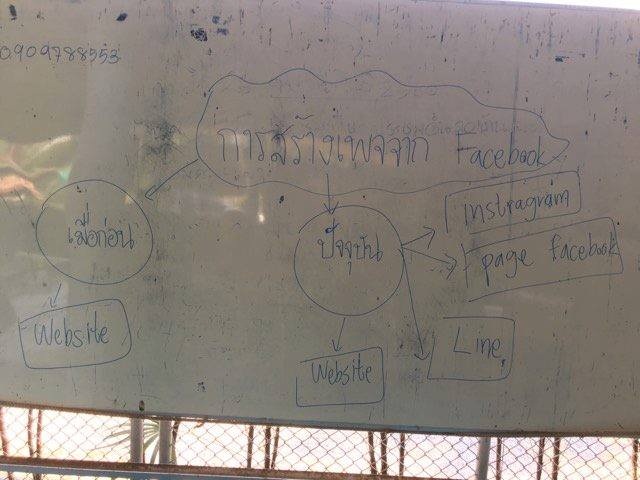 0909788553
การสร้างเพจจาก Facebook
เมื่อก่อน
ปัจจุบัน
instragram
page facebook
Website
Line
Website